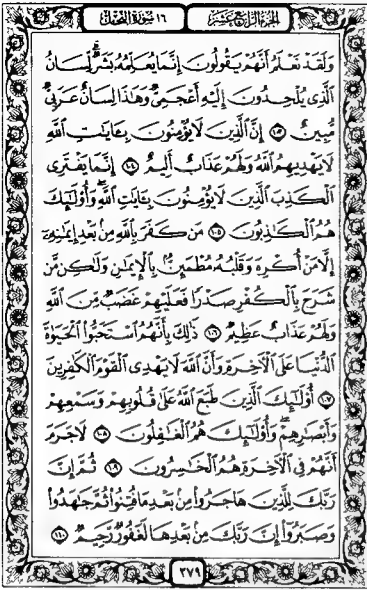 الجزء الرابع عشر
١٦ سورة النحل
وَلَقَدْ نَعْلَمُ أَنَّهُمْ يَقُولُونَ إِنَّمَا يُعَلِّمُهُ بَشَرٌ لِّسَانُ
الَّذِى يُلْحِدُونَ إِلَيْهِ أَعْجَمِىٌّ وَهَٰذَا لِسَانٌ عَرَبِىٌّ
مُّبِينٌ ١٠٣ إِنَّ الَّذِينَ لَا يُؤْمِنُونَ بِـَٔايَٰتِ اللَّهِ
لَا يَهْدِيهِمُ اللَّهُ وَلَهُمْ عَذَابٌ أَلِيمٌ ١٠٤ إِنَّمَا يَفْتَرِى
الْكَذِبَ الَّذِينَ لَا يُؤْمِنُونَ بِـَٔايَٰتِ اللَّهِ وَأُو۟لَٰٓئِكَ
هُمُ الْكَٰذِبُونَ ١٠٥ مَن كَفَرَ بِاللَّهِ مِنۢ بَعْدِ إِيمَٰنِهِۦٓ
إِلَّا مَنْ أُكْرِهَ وَقَلْبُهُۥ مُطْمَئِنٌّۢ بِالْإِيمَٰنِ وَلَٰكِن مَّن
شَرَحَ بِالْكُفْرِ صَدْرًا فَعَلَيْهِمْ غَضَبٌ مِّنَ اللَّهِ
وَلَهُمْ عَذَابٌ عَظِيمٌ ١٠٦ ذَٰلِكَ بِأَنَّهُمُ اسْتَحَبُّوا۟ الْحَيَوٰةَ
الدُّنْيَا عَلَى الْـَٔاخِرَةِ وَأَنَّ اللَّهَ لَا يَهْدِى الْقَوْمَ الْكَٰفِرِينَ
١٠٧ أُو۟لَٰٓئِكَ الَّذِينَ طَبَعَ اللَّهُ عَلَىٰ قُلُوبِهِمْ وَسَمْعِهِمْ
وَأَبْصَٰرِهِمْ وَأُو۟لَٰٓئِكَ هُمُ الْغَٰفِلُونَ ١٠٨ لَا جَرَمَ
أَنَّهُمْ فِى الْـَٔاخِرَةِ هُمُ الْخَٰسِرُونَ ١٠٩ ثُمَّ إِنَّ
رَبَّكَ لِلَّذِينَ هَاجَرُوا۟ مِنۢ بَعْدِ مَا فُتِنُوا۟ ثُمَّ جَٰهَدُوا۟
وَصَبَرُوٓا۟ إِنَّ رَبَّكَ مِنۢ بَعْدِهَا لَغَفُورٌ رَّحِيمٌ ١١٠
٣٧٩